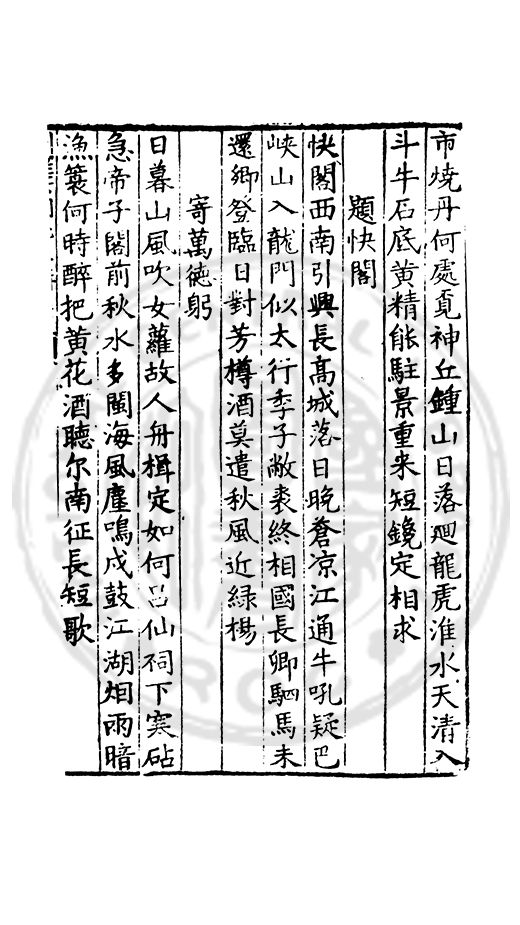 市燒丹何處覔神丘鍾山日落廻龍虎淮水天清入
斗牛石底黄精能駐景重来短鑱定相求
題快閣
快閣西南引興長高城落日晚蒼凉江通牛吼疑巴
峡山入龍門似太行季子敝裘終相國長卿駟馬未
還鄉登臨日對芳樽酒莫遣秋風近緑楊
寄萬德躬
日暮山風吹女蘿故人舟楫定如何吕仙祠下寒砧
急帝子閣前秋水多閩海風塵鳴戍鼓江湖烟雨暗
漁簑何時醉把黄花酒聽尔南征長短歌